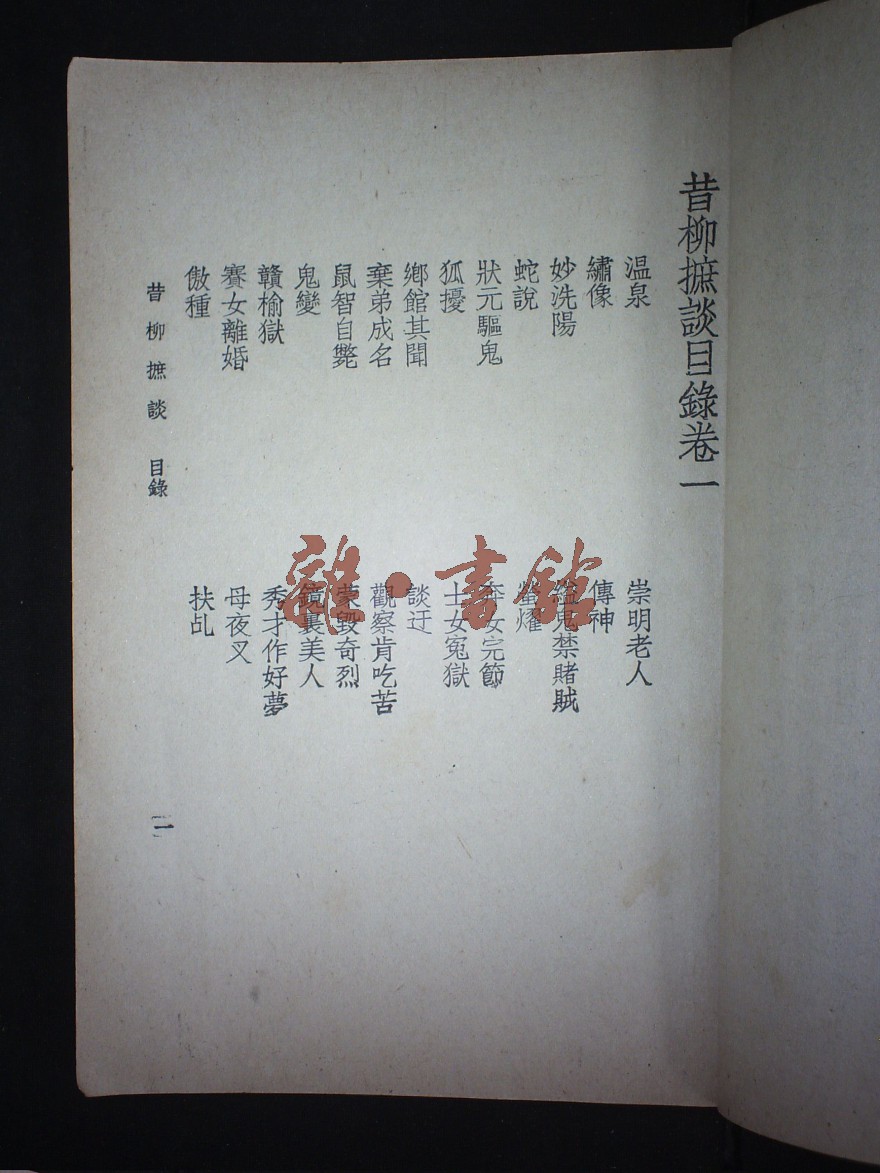 昔柳摭談目錄卷一
温泉 崇明老人
繡像 傳神
妙洗陽 縊鬼禁賭賊
蛇說 螢燿
狀元驅鬼 奔女完節
狐擾 士女冤獄
鄉館其聞 談迂
棄弟成名 觀察肯吃苦
鼠智自斃 蒙毀奇烈
鬼變 鏡裏美人
贛榆獄 秀才作好夢
賽女離婚 母夜叉
傲種 扶乩
昔柳摭談 目錄 一
書館